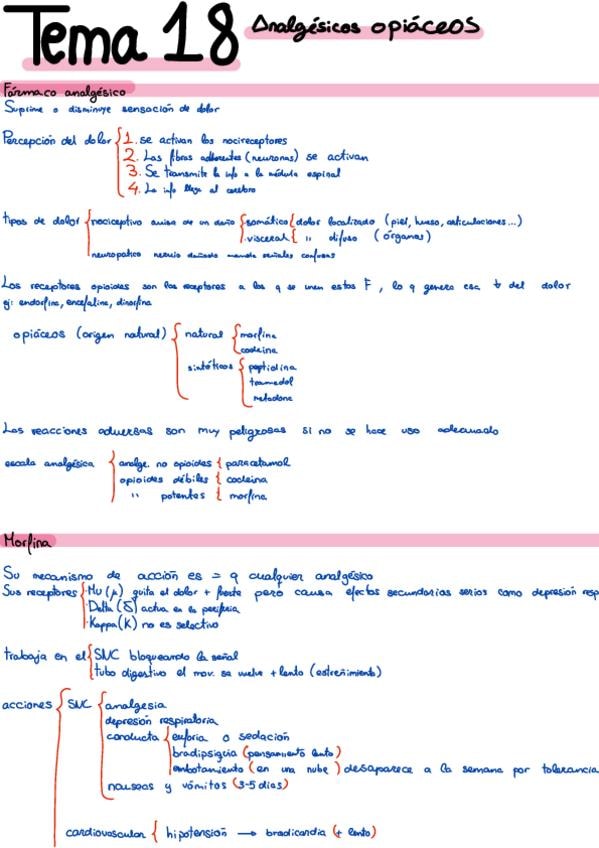 Tema 18 Analgésicos opiáceos
Fármaco analgésico
Suprime o disminuye sensación de dolor
Percepción del dolor 1. se activan los nocireceptores
2. Las fibras adherentes (neuronas) se activan
3. Se transmite la info a la médula espinal
4. La info llega al cerebro
tipos de dolor nociceptivo avisa de un daño somático dolor localizado (piel, hueso, articulaciones...)
visceral " difuso (órganos)
neuropatico nervio dañado manda señales confusas
Los receptores opioides son los receptores a los q se unen estos F, lo q genera esa ↓ del dolor
ej: endorfina, encefalina, dinorfina
opiáceos (origen natural) natural morfina
codeina
sintéticos peptidina
tramadol
metadona
Las reacciones adversas son muy peligrosas si no se hace uso adecuado
escala analgésica analge. no opioides paracetamol
opioides débiles codeina
" potentes morfina
Morfina
Su mecanismo de acción es = q cualquier analgésico
Sus receptores Mu (μ) quita el dolor + fuerte pero causa efectos secundarios serios como depresión resp
Delta (δ) actua en la periferia
Kappa (K) no es selectivo
trabaja en el SNC bloqueando la señal
tubo digestivo el mov. se vuelve + lento (estreñimiento)
acciones SNC analgesia
depresión respiratoria
conducta euforia o sedación
bradipsiquia (pensamiento lento)
embotamiento (en una nube) desaparece a la semana por tolerancia
nauseas y vómitos (3-5 dias)
cardiovascular hipotensión → bradicardia (+ lento)